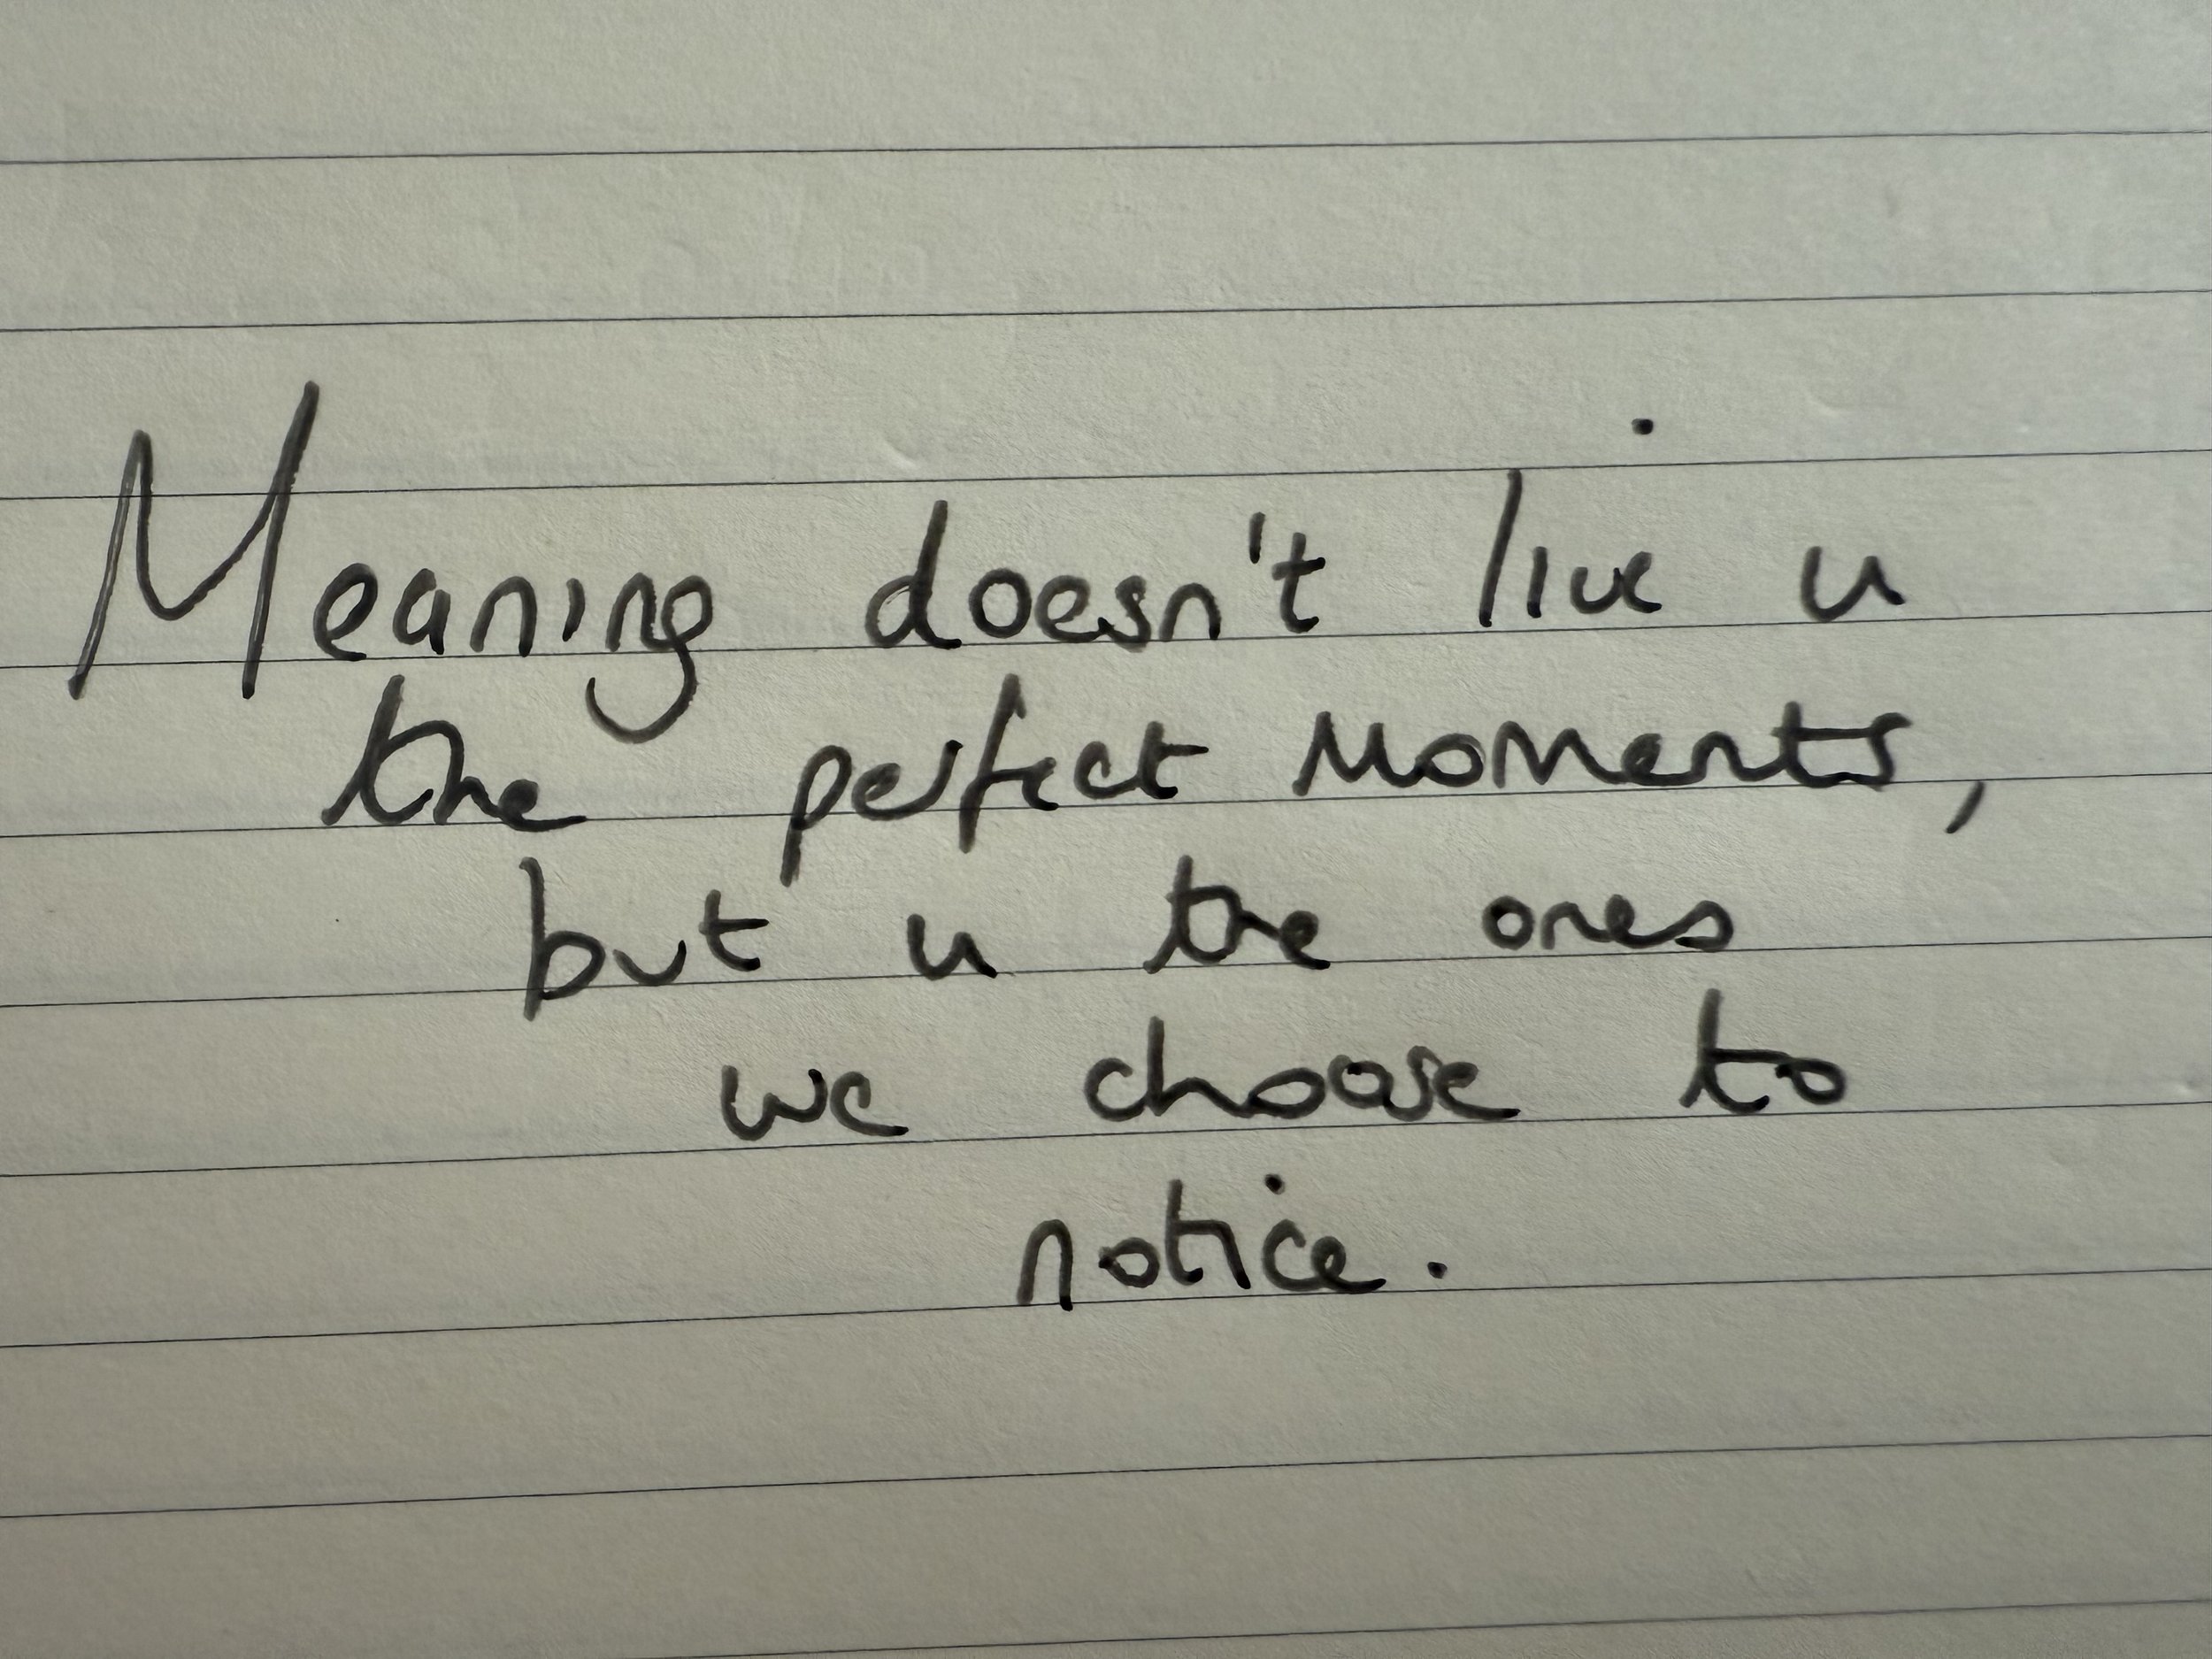 Meaning doesn't live in
the perfect moments,
but in the ones
we choose to
notice.